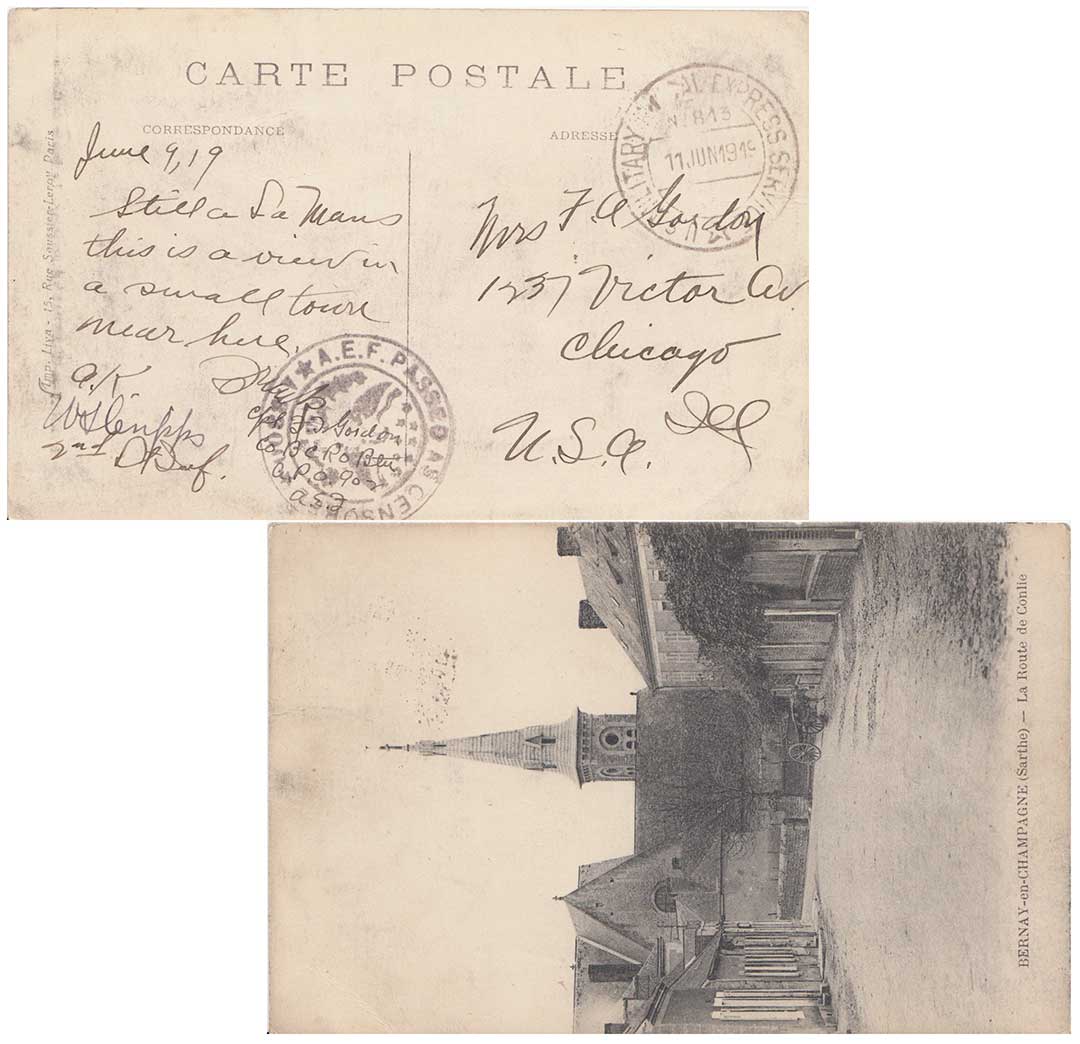 CARTE POSTALE
CORRESPONDANCE
ADRESSE
MILITARY POSTAL EXPRESS SERVICE
Nº 813
11 JUN 1919
U.S.A
June 9, 19
Still a La Mans
this is a view in
a small town
near here.
O.K.
2nd
Cpl F S Gordon
Co B C P O Bln
A.P.O. 902
A E F
Mrs F A Gordon
1237 Victor Av
Chicago
Ill
U.S.A.
A.E.F. PASSED AS CENSORED
Imp. Liva - 15, Rue Saussier-Leroy Paris
BERNAY-en-CHAMPAGNE (Sarthe) — La Route de Conlie